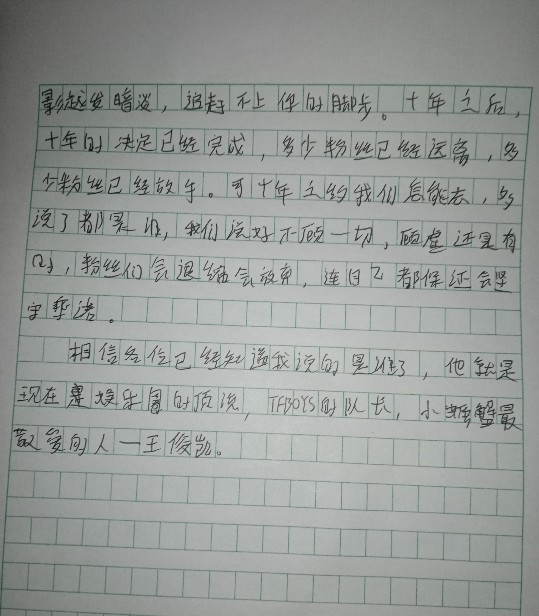 影越发暗淡，追赶不上你的脚步。十年之后，
十年的决定已经完成，多少粉丝已经远离，多
少粉丝已经放手。可十年之约我们怎能忘，多
说了都是泪，我们说好不顾一切，顾虑还是有
的，粉丝们会退缩会放弃，连自己都保证会坚
守承诺。
相信各位已经知道我说的是谁了，他就是
现在娱乐圈的顶流，TFBOYS的队长，小螃蟹最
敬爱的人一王俊凯。